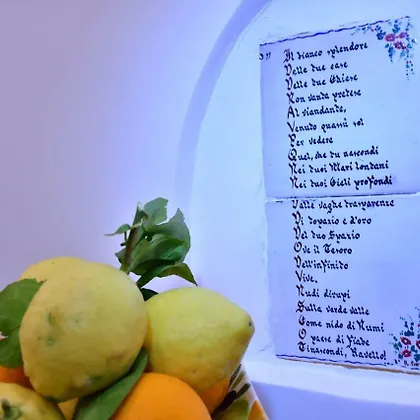 Il bianco splendore
Delle due case
Delle due Chiese
Non vanta pretese
Al viandante,
Venuto quassù sol
Per vedere
Quel, che tu nascondi
Nei tuoi Mari lontani
Nei tuoi Cieli profondi
Dalle vaghe trasparenze
Di topazio e d'oro
Del tuo Spazio
Ove il Tesoro
Dell'infinito
Vive.
Nudi dirupi
Sulla verde valle
Come nido di Numi
O paese di Fiabe
Ti nascondi, Ravello!